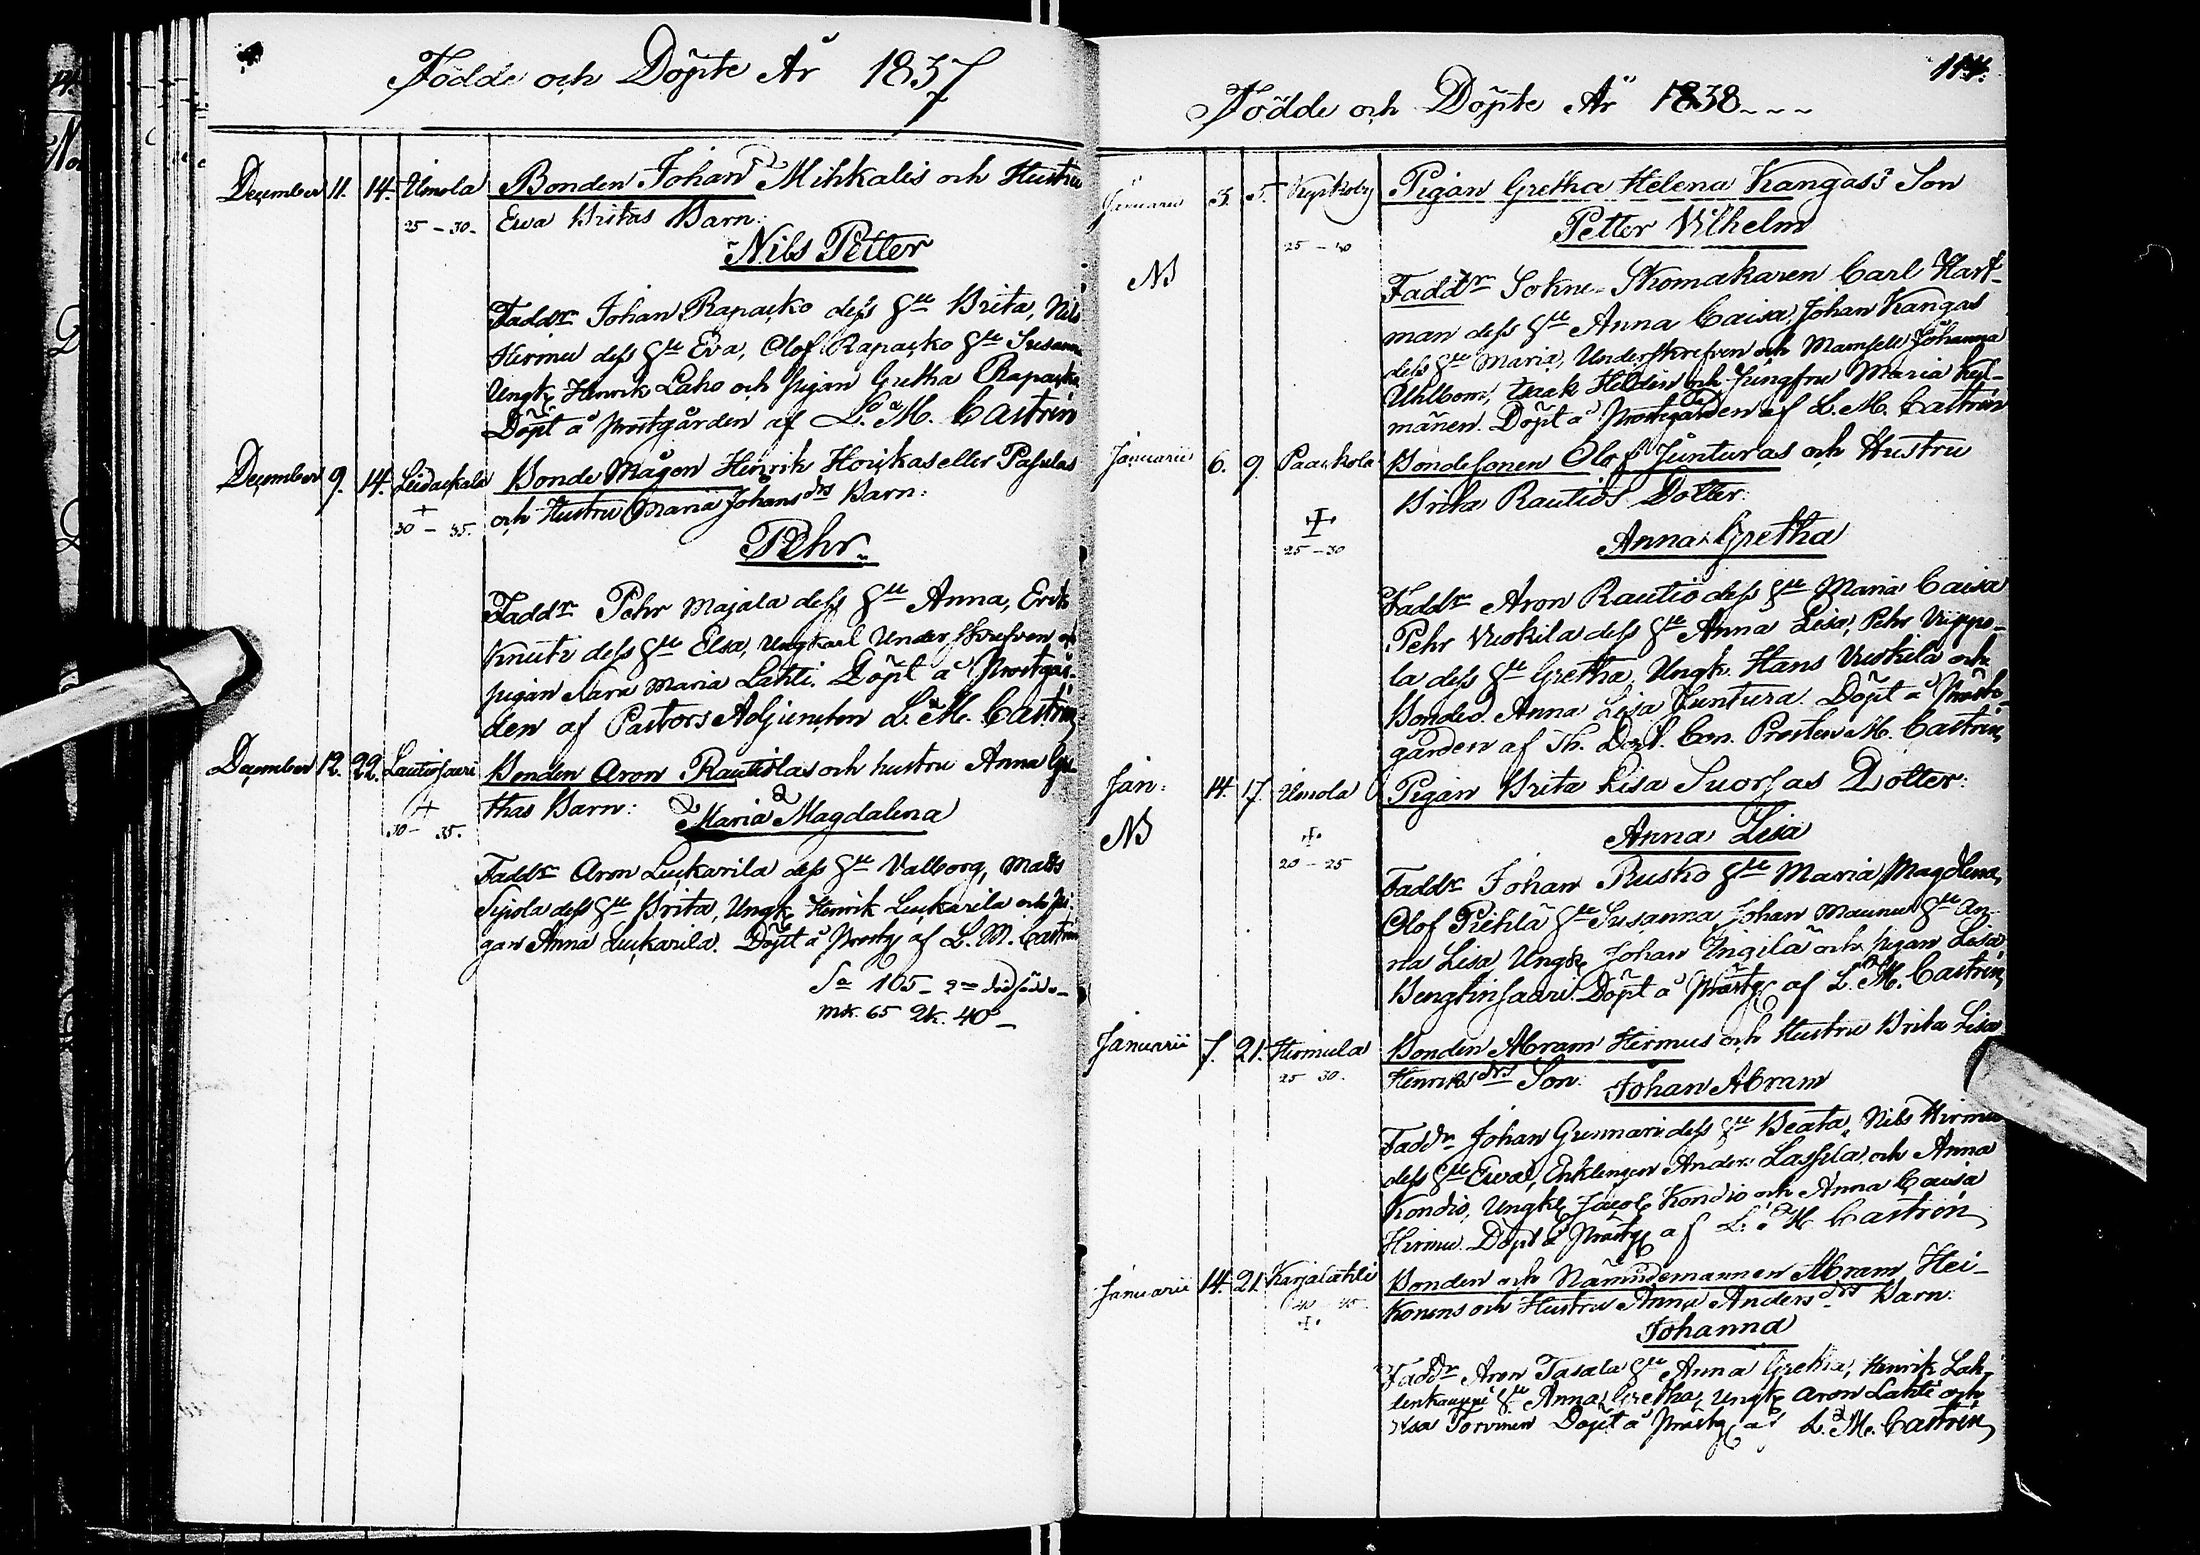 Födde och Döpte År 1837
December 11. 14. Uimola Bonden Johan Mihkalis och Hustru
25 - 30. Ewa Britas Barn:
Nils Petter
Faddr Johan Rapacko dess hu Brita, Nils
Hirmu dess hu Eva, Olof Rapacko hu Susanna
Ungk. Henrik Laho och pigan Gretha Rapacko
Döpt å Prostgården af L. M. Castrén
December 9. 14. Bonde Mågen Hinrik Houkas eller Pasulas
30 - 35. och Hustru Maria Johansdrs Barn:
Pehr
Faddr Pehr Majala dess hu Anna, Erik
Knuti dess hu Elsa, Ungkarl Underskrefven och
pigan Maria Lahti. Döpt å Prostgår-
den af Pastors Adjuncten L. M. Castrén
December 12. 22. Lautiosaari Bonden Aron Rautiolas och hustru Anna Gre-
30 - 35. thas Barn: Maria Magdalena
Faddr Aron Luckarila dess hu Valborg, Matts
Sipola dess hu Brita, Ungk. Henrik Luckarila och pi-
gan Anna Luckarila. Döpt å Prostg. af L. M. Castrén
Sa 105 - 2ne dödfödde -
mk. 65 Qk. 40 -
114.
Födde och Döpte År 1838 - - -
Januarii 3. 5. Kyrkoby Pigan Gretha Helena Kangas's Son
25 - 30 Petter Vilhelm
NB
Faddr Sokne-Skomakaren Carl Hart-
man dess hu Anna Caisa, Johan Kangas
dess hu Maria, Underskrefven och Mamsell Johanna
Uhlbom, Isack Heldin och Jungfru Maria
Döpt å Prostegården af L. M. Castrén
Januarii 6. 9. Paackola Bondesonen Olof Junturas och Hustru
Brita Rautios Dotter:
25 - 30 Anna Gretha
Faddr Aron Rautio dess hu Maria Caisa
Pehr Uuskila dess hu Anna Lisa, Pehr Vuppo-
la dess hu Gretha, Ungk. Hans Uuskila och
Bonded. Anna Lisa Juntura. Döpt å Proste-
gården af Th. Doct. Con. Prosten M. Castrén
Jan: 14. 17. Uimola Pigan Brita Lisa Suorsas Dotter:
NB
20 - 25 Anna Lisa
Faddr Johan Rusko hu Maria Magdlena,
Olof Piehlä hu Susanna Johan Maunu hu An-
na Lisa, Ungk. Johan Yngilä och pigan Lisa
Benglinsaari. Döpt å Prostg. af L. M. Castrén
Januarii 7. 21. Hirmula Bonden Abram Hirmus och Hustru Brita Lisa
25 30. Henriksdrs Son: Johan Abram
Faddr Johan Gunnari dess hu Beata, Nils Hirmu
dess hu Ewa, Enklingen Anders Lassila, och Anna
Kondio, Ungk. Jacob Kondio och Anna Caisa
Hirmu. Döpt å Prostg. af L. M. Castrén
Januarii 14. 21. Karjalahti Bonden och Nämndemannen Abram Hei-
40 - 45. konens och Hustru Anna Andersdrs Barn:
Johanna
Faddr Aron Tasala hu Anna Gretha, Henrik Lah-
hu Anna Gretha, Ungk. Aron Lahti och
Elsa Torvinen Döpt å Prostg. af L. M. Castrén